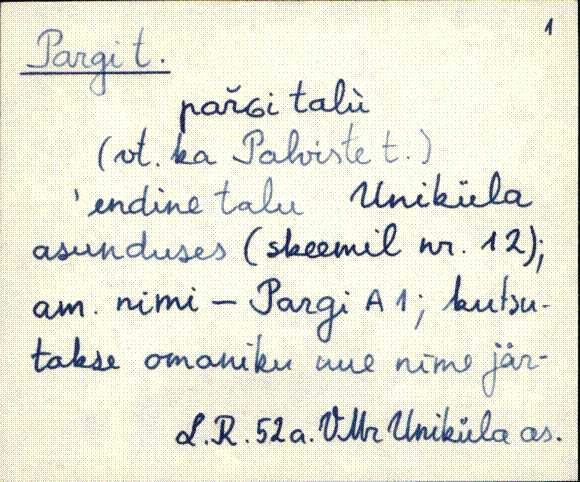 1
Pargi t.
pař̌ɢi talù
(vt. ka Palviste t.)
'endine talu Uniküla
asunduses (skeemil nr. 12);
am. nimi – Pargi A 1; kutsu-
takse omaniku uue nime jär-
L.R. 52a. VMr Uniküla as.